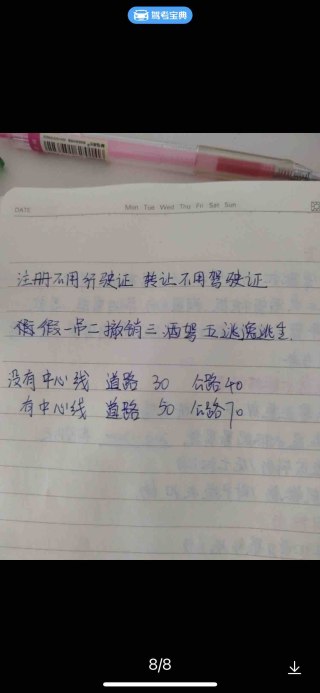 驾考宝典
DATE
Mon Tue Wed Thu Fri Sat Sun
注册不用行驶证 转让不用驾驶证
假一吊二撤销三酒驾五逃逸终生
没有中心线 道路 30 公路40
有中心线 道路 50 公路70
8/8